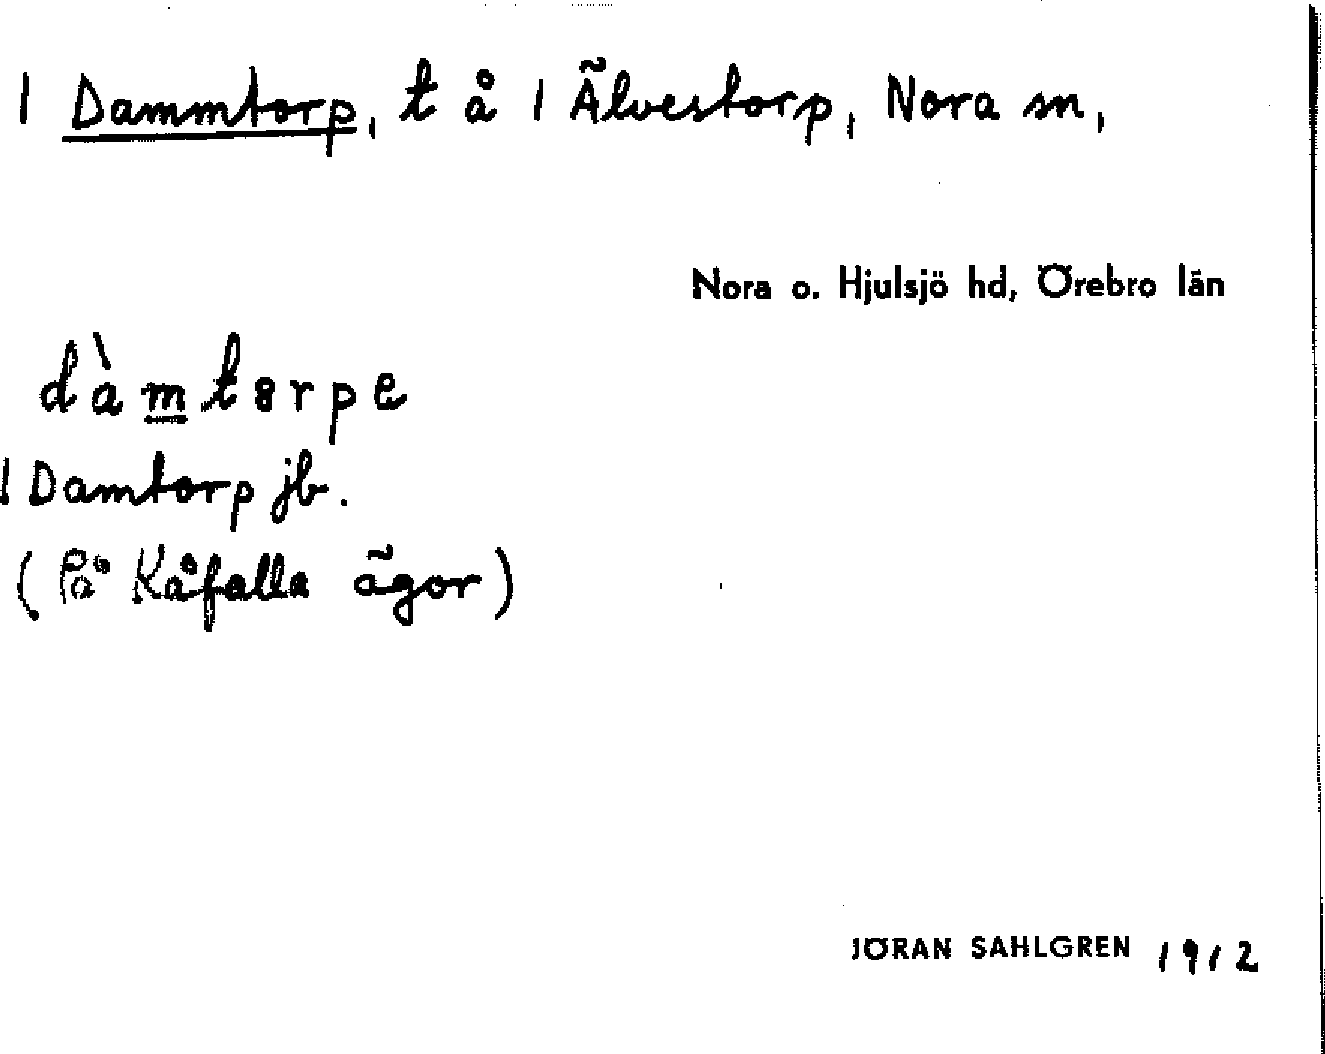 1 Dammtorp, t å 1 Älvestorp, Nora sn,
Nora o. Hjulsjö hd, Örebro län
dàmtɵrpe
1 Damtorp jb.
(På Kåfalla ägor)
JÖRAN SAHLGREN 1912